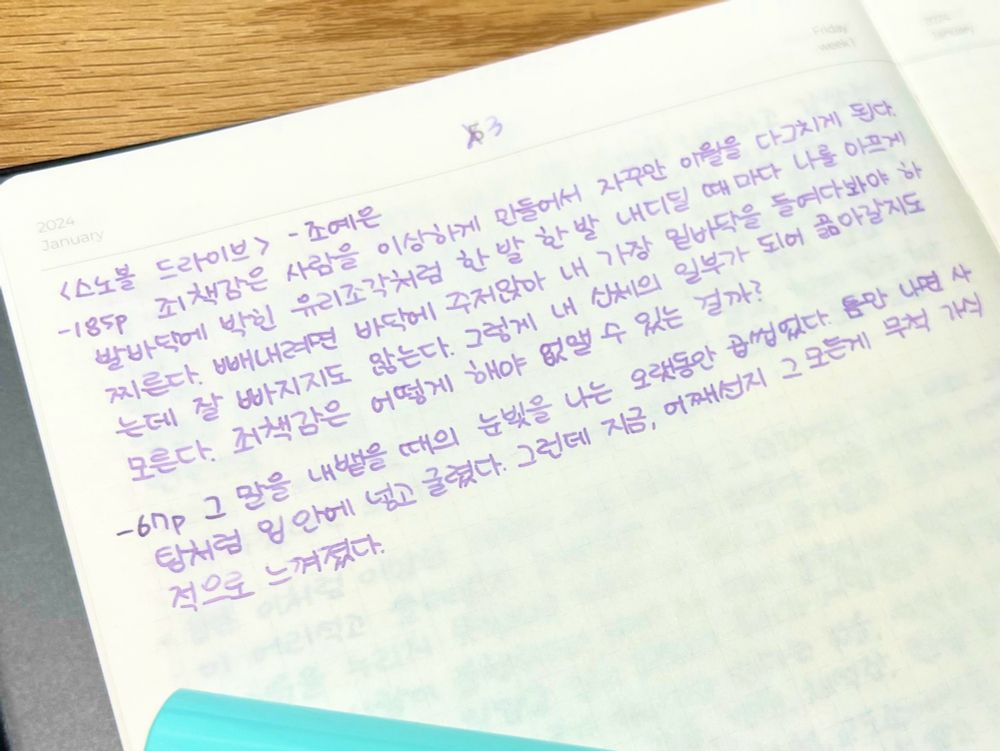 Friday
week1
2024
January
3
2024
January
<스노볼 드라이브> - 조예은
-185p 죄책감은 사람을 이상하게 만들어서 자꾸만 이월을 다그치게 된다.
발바닥에 박힌 유리조각처럼 한 발 한 발 내디딜 때마다 나를 아프게
찌른다. 빼내려면 바닥에 주저앉아 내 가장 밑바닥을 들여다봐야 하
는데 잘 빠지지도 않는다. 그렇게 내 신체의 일부가 되어 곪아갈지도
모른다. 죄책감은 어떻게 해야 없앨 수 있는 걸까?
-67p 그 말을 내뱉을 때의 눈빛을 나는 오랫동안 곱씹었다. 틈만 나면 사
탕처럼 입 안에 넣고 굴렸다. 그런데 지금, 어째선지 그 모든게 무척 가식
적으로 느껴졌다.